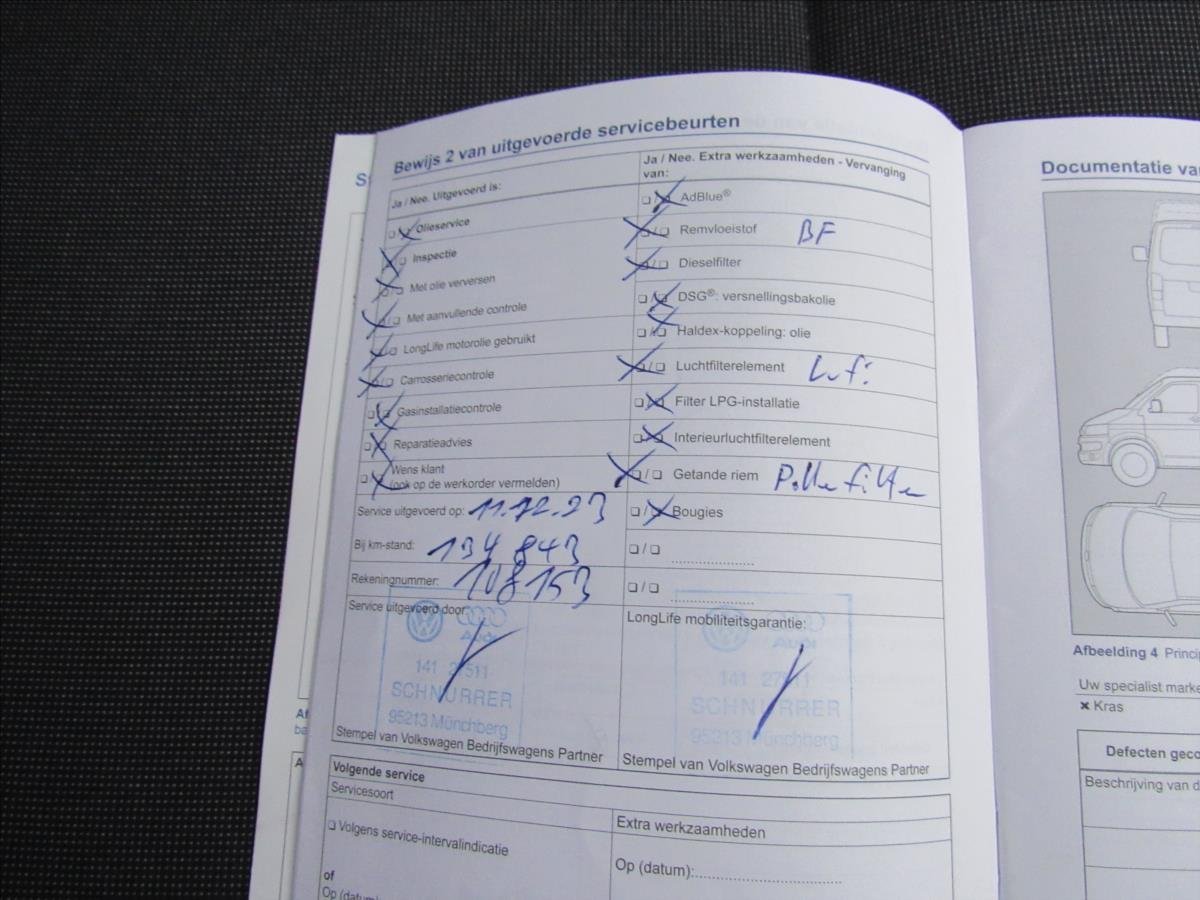 Bewijs 2 van uitgevoerde servicebeurten
Ja / Nee. Uitgevoerd is:
Olieservice
Inspectie
Met olie verversen
Met aanvullende controle
LongLife motorolie gebruikt
Carrosseriecontrole
Gasinstallatiecontrole
Reparatieadvies
Wens klant
(ook op de werkorder vermelden)
Service uitgevoerd op: 11.12.23
Bij km-stand: 134 843
Rekeningnummer: 108153
Service uitgevoerd door:
Audi
141 27511
SCHNURRER
95213 Münchberg
Stempel van Volkswagen Bedrijfswagens Partner
Ja / Nee. Extra werkzaamheden - Vervanging
van:
AdBlue®
Remvloeistof BF
Dieselfilter
DSG®: versnellingsbakolie
Haldex-koppeling: olie
Luchtfilterelement
Filter LPG-installatie
Interieurluchtfilterelement
Getande riem
Bougies
LongLife mobiliteitsgarantie:
Audi
141 27511
SCHNURRER
95213 Münchberg
Stempel van Volkswagen Bedrijfswagens Partner
Volgende service
Servicesoort
Volgens service-intervalindicatie
of
Op (datum)
Extra werkzaamheden
Op (datum):
Documentatie
Afbeelding 4
Uw specialist
✖ Kras
Defecten
Beschrijving van